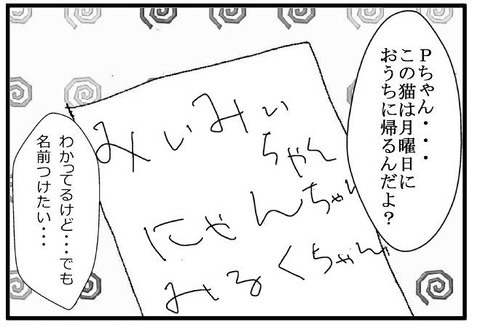 Pちゃん・・・
この猫は月曜日に
おうちに帰るんだよ?
みぃみぃ
ちゃん
にゃんちゃん
みるくちゃん
わかってるけど・・・でも
名前つけたい・・・